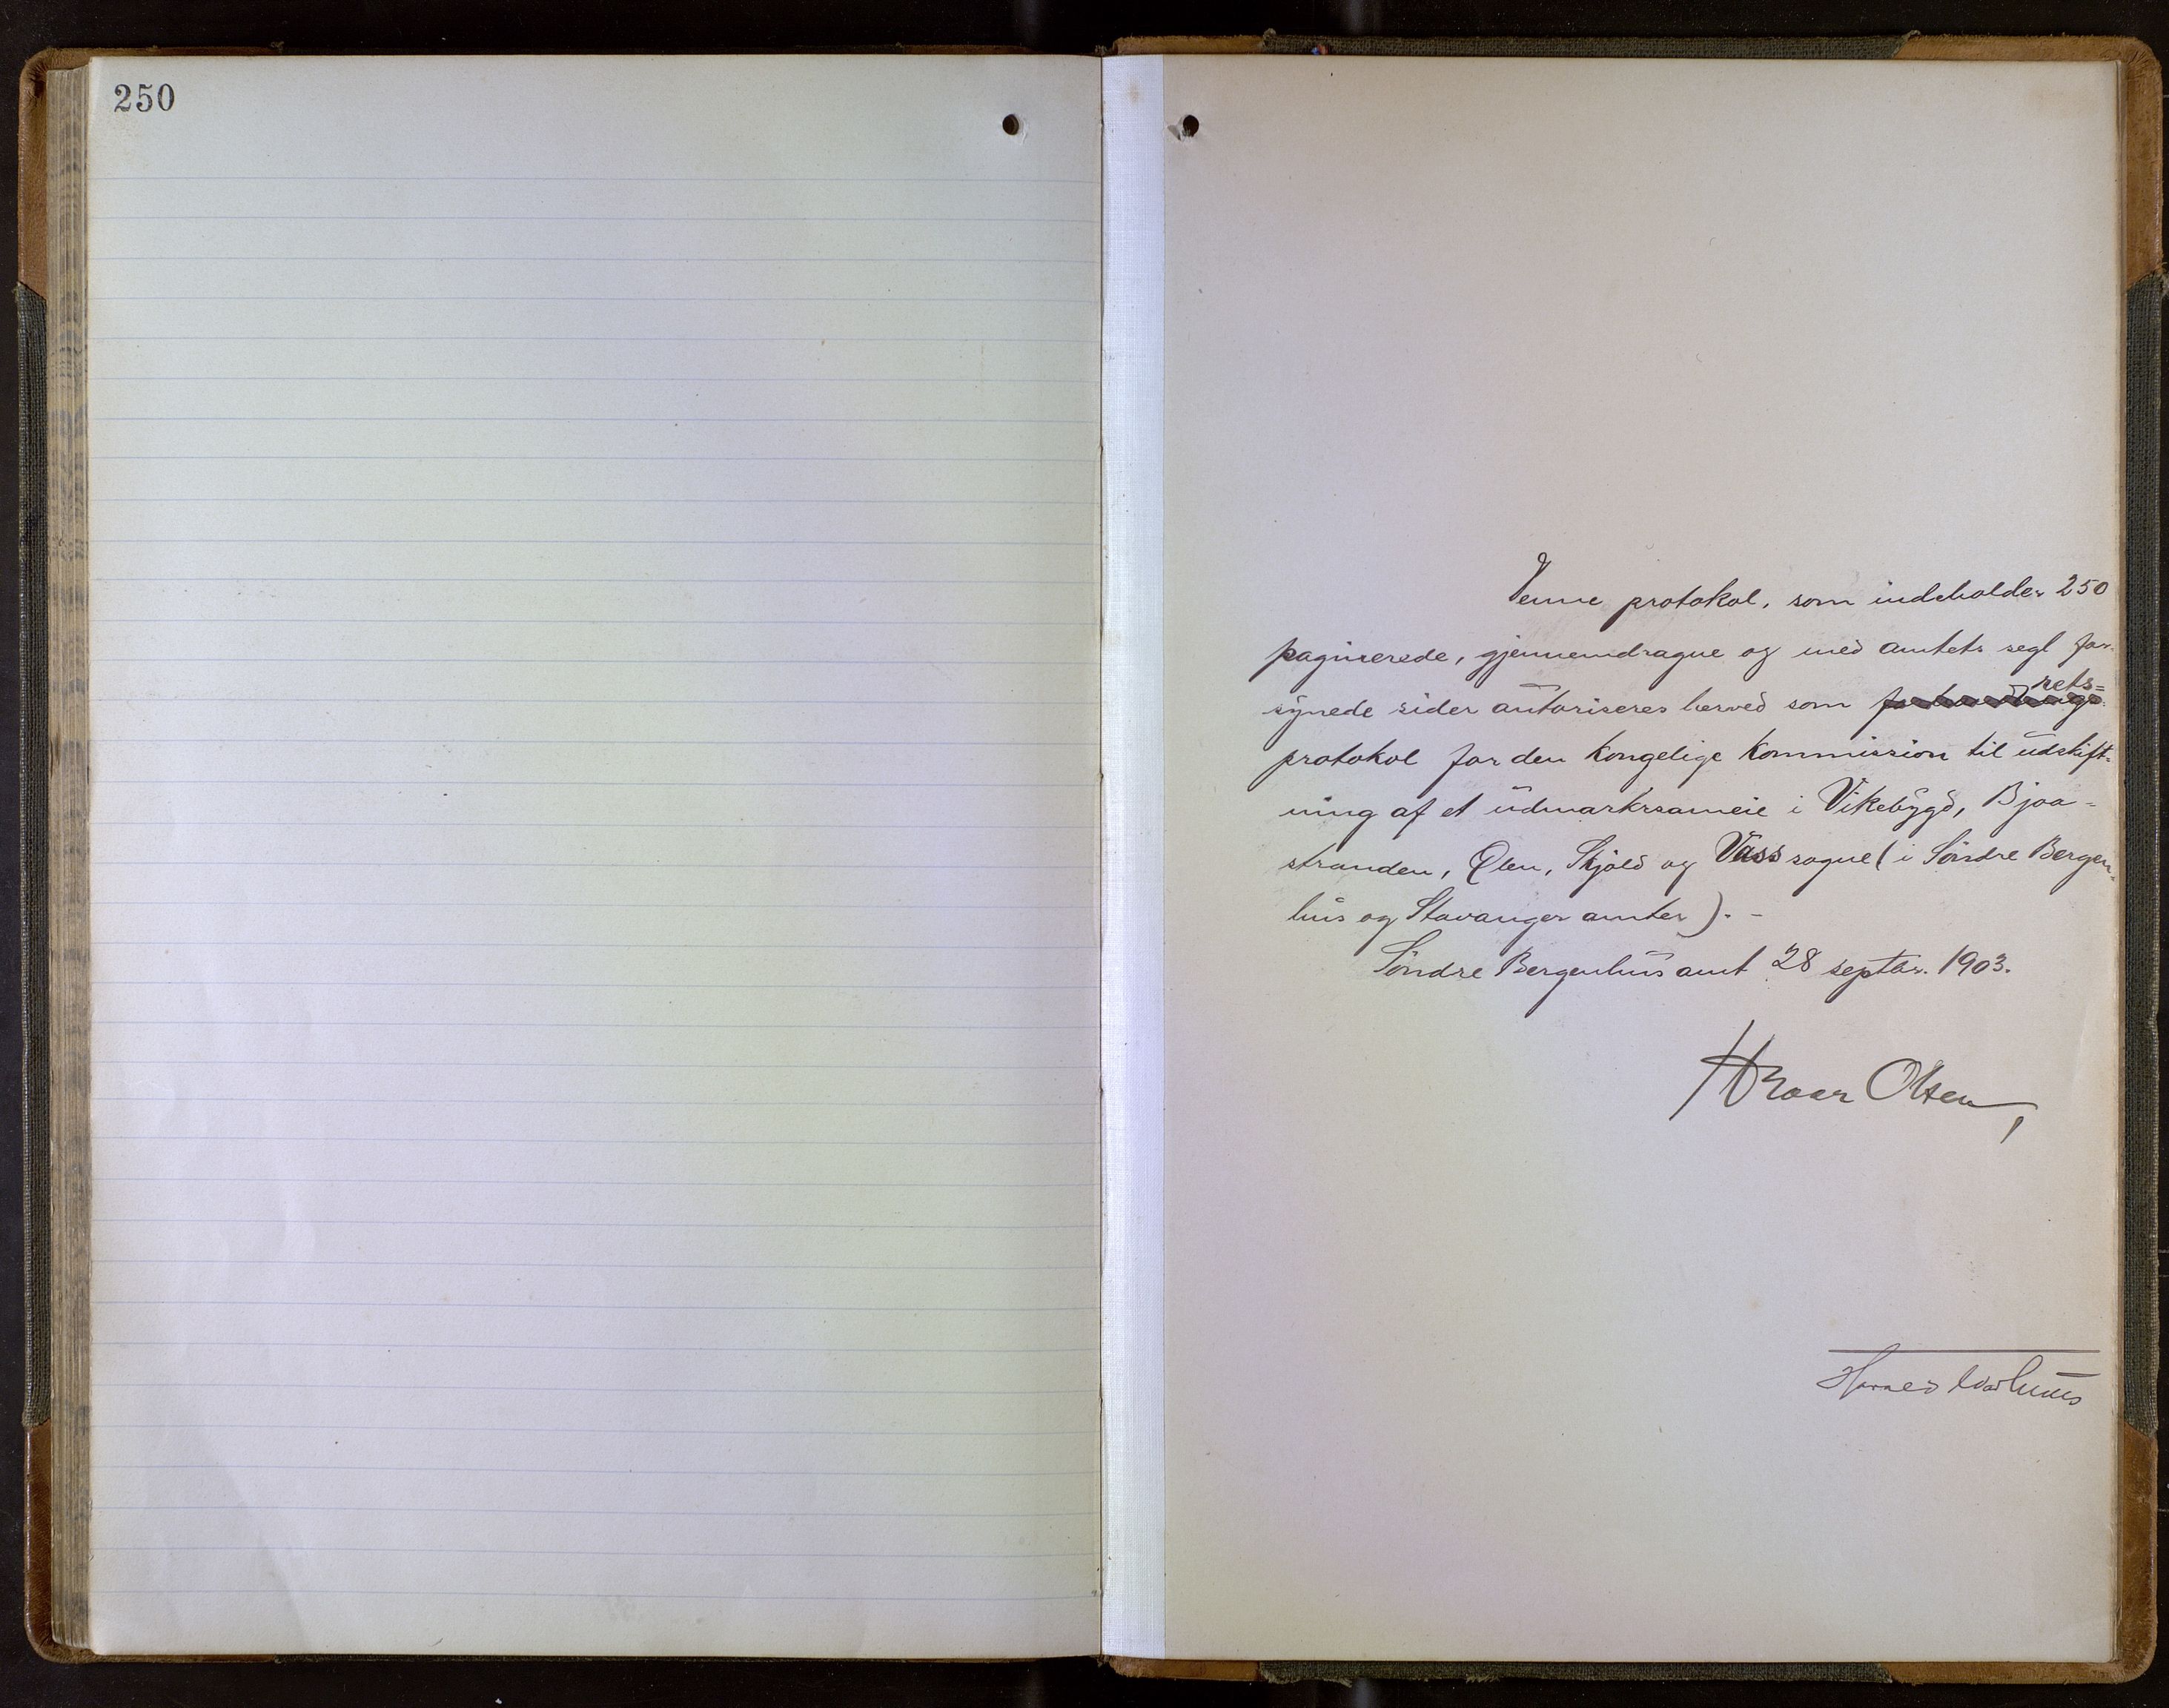 250
Denne protokol, som indeholder 250
paginerede, gjennemdragne og med amtets segl for-
synede sider autoriseres herved som rets=
protokol for den kongelige Kommission til udskift-
ning af et udmarkssameie i Vikebygd, Bjoa-
stranden, Ølen, Skjold og Vass sogne (i Söndre Bergen-
hus og Stavanger amter). -
Söndre Bergenhus amt 28 septbr. 1903.
Hroar Olsen
Harald